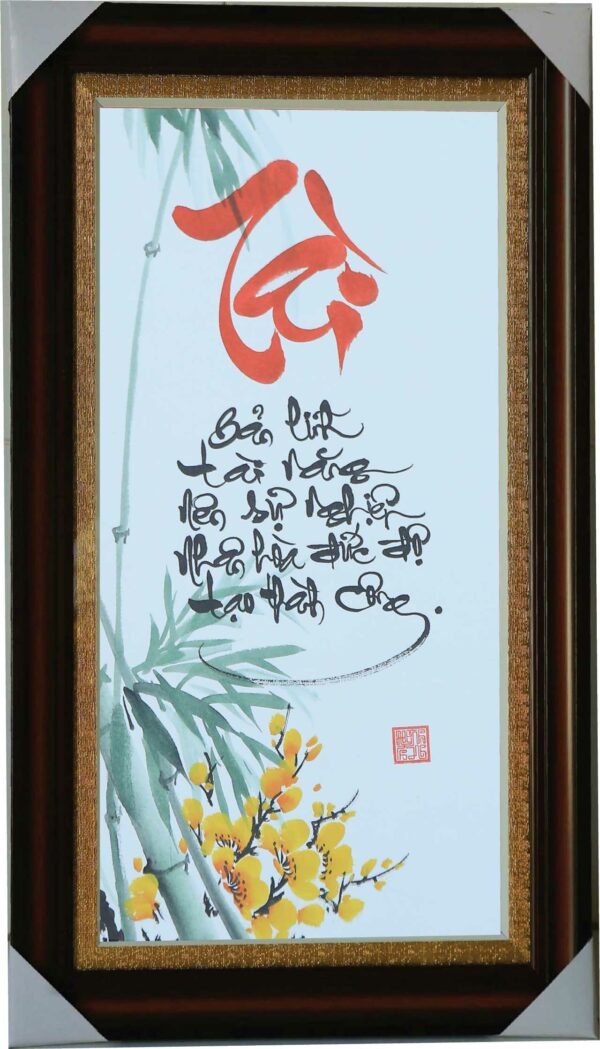 Tài
Bản lĩnh
tài năng
nên sự nghiệp
nhân hòa đức độ
tạo thành công.